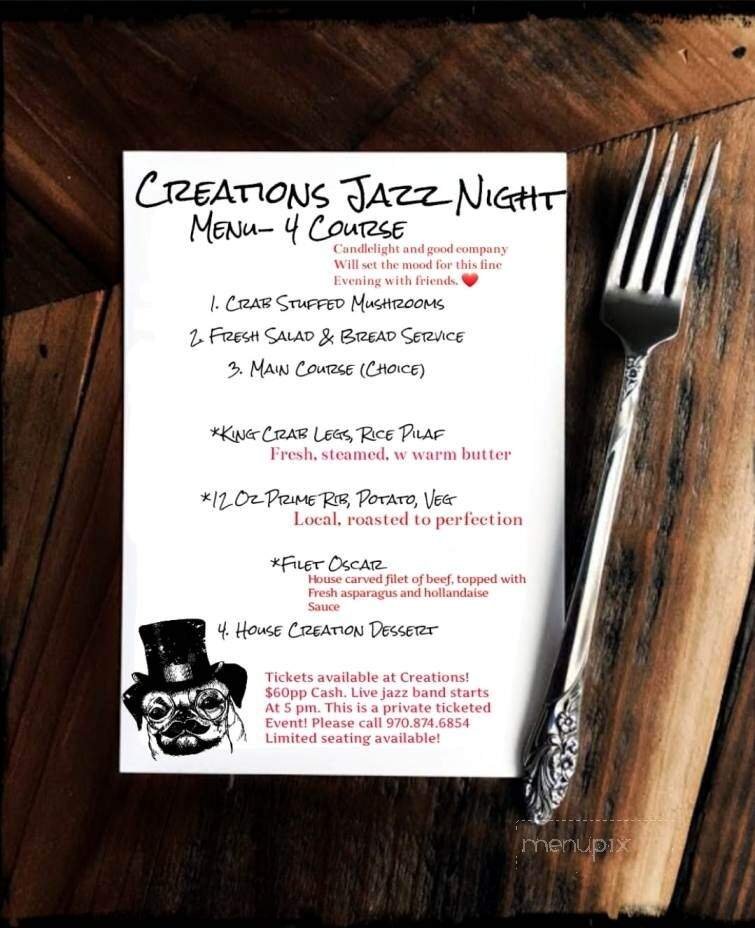 Creations Jazz Night
Menu- 4 Course
Candlelight and good company
Will set the mood for this fine
Evening with friends. ❤️
1. Crab Stuffed Mushrooms
2. Fresh Salad & Bread Service
3. Main Course (Choice)
*King Crab Legs, Rice Pilaf
Fresh, steamed, w warm butter
*12 Oz Prime Rib, Potato, Veg
Local, roasted to perfection
*Filet Oscar
House carved filet of beef, topped with
Fresh asparagus and hollandaise
Sauce
4. House Creation Dessert
Tickets available at Creations!
$60pp Cash. Live jazz band starts
At 5 pm. This is a private ticketed
Event! Please call 970.874.6854
Limited seating available!
menupix